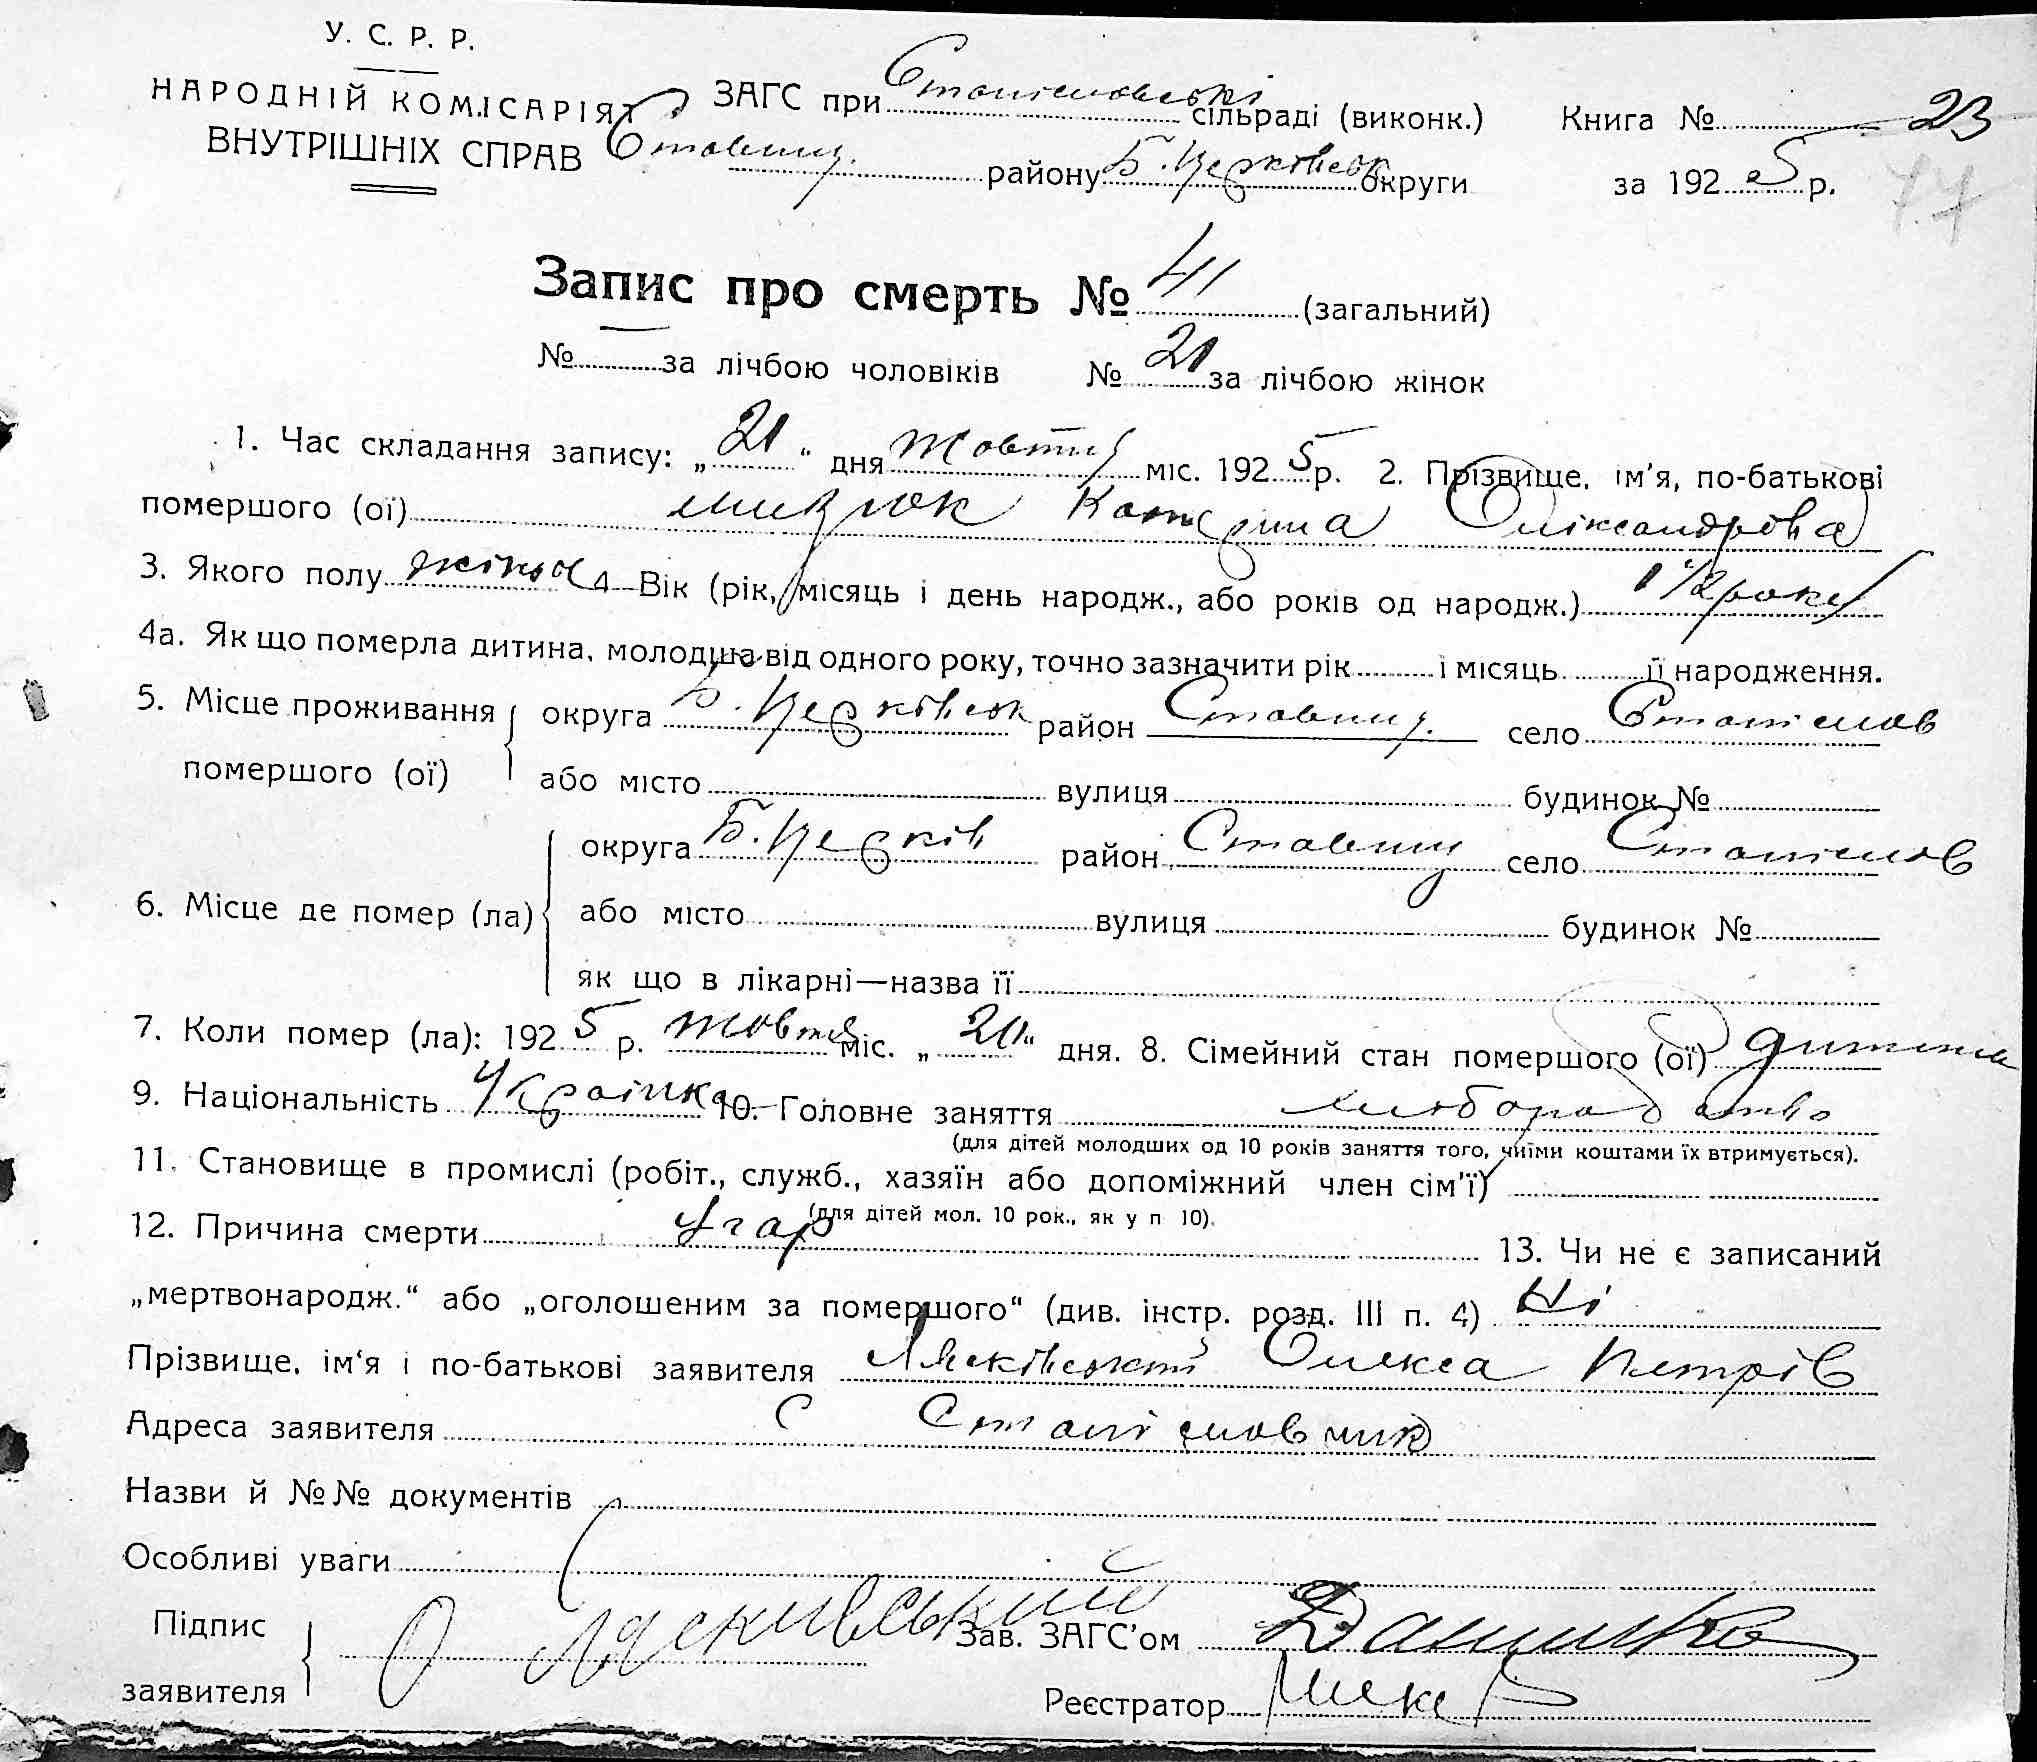 У. С. Р. Р.
НАРОДНІЙ КОМІСАРІЯТ ЗАГС при Станіславські сільраді (виконк.) Книга № 23
ВНУТРІШНІХ СПРАВ Ставищ. району Б. Церківськ округи за 1925 р. 77
Запис про смерть № 41 (загальний)
№ за лічбою чоловіків № 21 за лічбою жінок
1. Час складання запису: „21“ дня Жовтня міс. 1925 р. 2. Прізвище, ім'я, по-батькові
помершого (ої) Катерина Олександрова
3. Якого полу жіноч 4 Вік (рік, місяць і день народж., або років од народж.) 1 1/2 року
4а. Як що померла дитина, молодша від одного року, точно зазначити рік і місяць її народження.
5. Місце проживання округа Б. Церківськ район Ставищ. село Станіслав
помершого (ої) або місто вулиця будинок №
округа Б. Церків район Ставищ село Станіслав
6. Місце де помер (ла) або місто вулиця будинок №
як що в лікарні—назва її
7. Коли помер (ла): 1925 р. Жовтня міс. „20“ дня. 8. Сімейний стан помершого (ої) дитина
9. Національність Українка 10. Головне заняття хліборобство
(для дітей молодших од 10 років заняття того, чиїми коштами їх втримується).
11. Становище в промислі (робіт., служб., хазяїн або допоміжний член сім'ї)
(для дітей мол. 10 рок., як у п 10).
12. Причина смерти Угар 13. Чи не є записаний
„мертвонародж.“ або „оголошеним за помершого“ (див. інстр. розд. III п. 4) Ні
Прізвище, ім'я і по-батькові заявителя Лясківський Олекса Петрів
Адреса заявителя С Станіславчик
Назви й №№ документів
Особливі уваги
Підпис О Лясківський Зав. ЗАГС'ом
заявителя Реєстратор